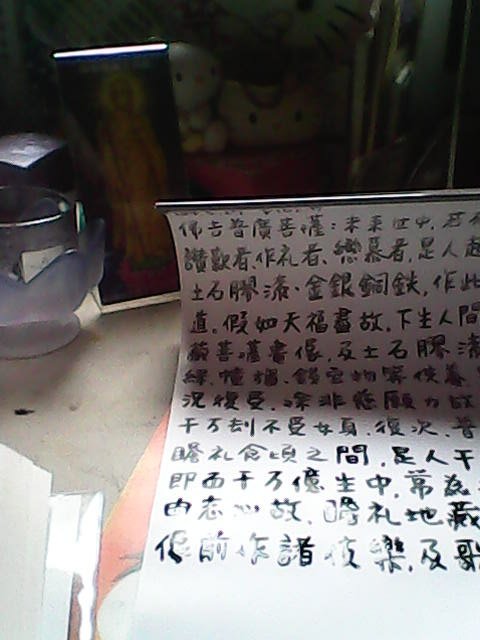 佛告普廣菩薩:未來世中,若有
讚歎者、作礼者、戀慕者,是人超
土石膠漆、金銀銅鉄,作此
道。假如天福盡故,下生人間
藏菩薩畫像,及土石膠漆
繒、幢幡、錢宝物等供養
況復受,除非慈願力故
千万刼不受女身。復次,普
瞻礼食頃之間,是人千
即面千万億生中,常為
由志心故,瞻礼地藏
像前作諸伎樂,及歌